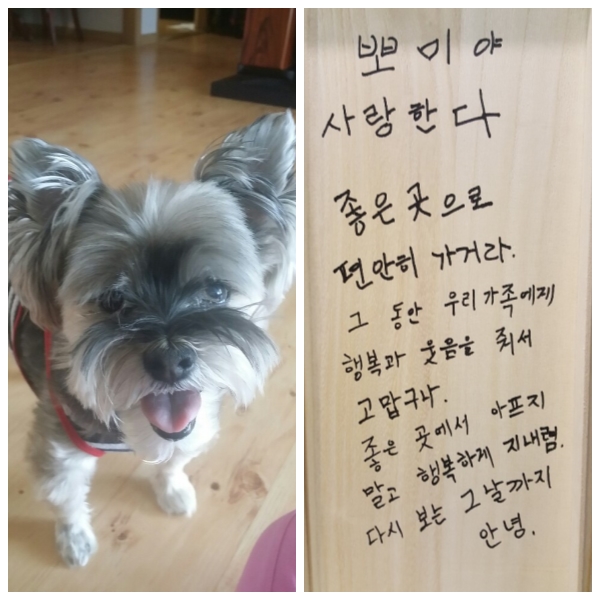 뽀미야
사랑한다
좋은 곳으로
편안히 가거라.
그 동안 우리가족에게
행복과 웃음을 줘서
고맙구나.
좋은 곳에서 아프지
말고 행복하게 지내렴.
다시 보는 그날까지
안녕.